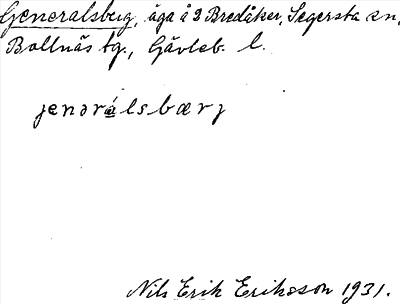 Generalsberg, äga å 3 Bredåker, Segersta sn,
Bollnäs tg., Gävleb. l.
jenərálsbærj
Nils Erik Eriksson 1931.